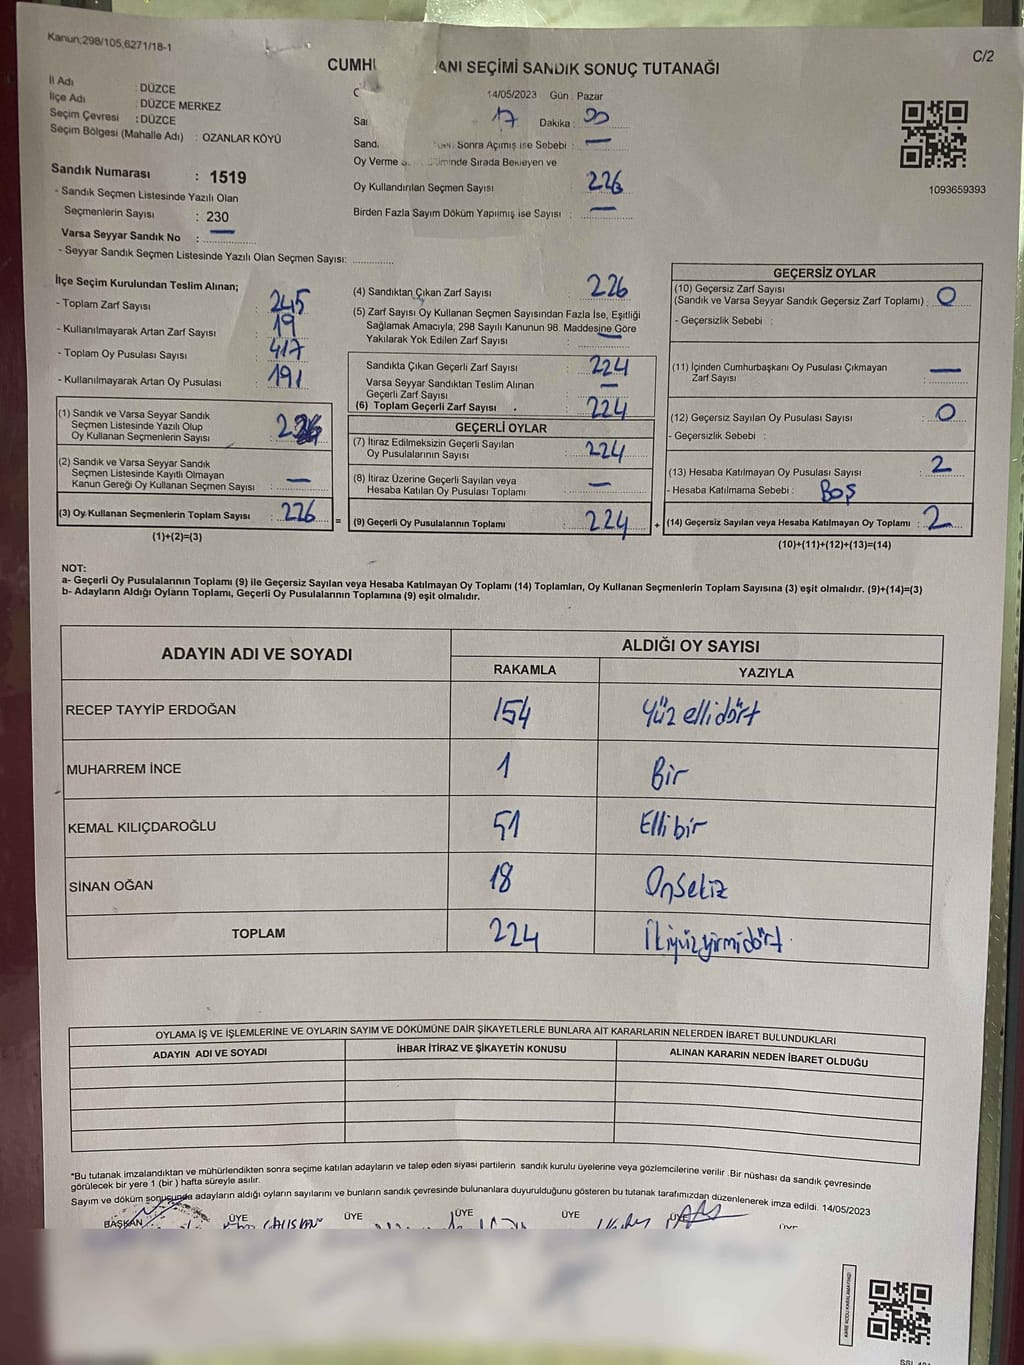 Kanun;298/105;6271/18-1
C/2
CUMH ANI SEÇİMİ SANDIK SONUÇ TUTANAĞI
İl Adı : DÜZCE
İlçe Adı : DÜZCE MERKEZ
Seçim Çevresi : DÜZCE
Seçim Bölgesi (Mahalle Adı) : OZANLAR KÖYÜ
14/05/2023 Gün : Pazar
17 Dakika : 00
Sonra Açımış ise Sebebi : —
Oy Verme Sırada Bekleyen ve
Oy Kullandırılan Seçmen Sayısı 226
Birden Fazla Sayım Döküm Yapılmış ise Sayısı : —
1093659393
Sandık Numarası : 1519
- Sandık Seçmen Listesinde Yazılı Olan
Seçmenlerin Sayısı : 230
Varsa Seyyar Sandık No : —
- Seyyar Sandık Seçmen Listesinde Yazılı Olan Seçmen Sayısı:
İlçe Seçim Kurulundan Teslim Alınan;
- Toplam Zarf Sayısı : 245
- Kullanılmayarak Artan Zarf Sayısı : 19
- Toplam Oy Pusulası Sayısı : 417
- Kullanılmayarak Artan Oy Pusulası : 191
(1) Sandık ve Varsa Seyyar Sandık
Seçmen Listesinde Yazılı Olup
Oy Kullanan Seçmenlerin Sayısı : 226
(2) Sandık ve Varsa Seyyar Sandık
Seçmen Listesinde Kayıtlı Olmayan
Kanun Gereği Oy Kullanan Seçmen Sayısı : —
(3) Oy Kullanan Seçmenlerin Toplam Sayısı : 226 =
(1)+(2)=(3)
(4) Sandıktan Çıkan Zarf Sayısı 226
(5) Zarf Sayısı Oy Kullanan Seçmen Sayısından Fazla İse, Eşitliği
Sağlamak Amacıyla, 298 Sayılı Kanunun 98. Maddesine Göre
Yakılarak Yok Edilen Zarf Sayısı : —
Sandıkta Çıkan Geçerli Zarf Sayısı : 224
Varsa Seyyar Sandıktan Teslim Alınan
Geçerli Zarf Sayısı : —
(6) Toplam Geçerli Zarf Sayısı : 224
GEÇERLİ OYLAR
(7) İtiraz Edilmeksizin Geçerli Sayılan
Oy Pusulalarının Sayısı : 224
(8) İtiraz Üzerine Geçerli Sayılan veya
Hesaba Katılan Oy Pusulası Toplamı : —
(9) Geçerli Oy Pusulalarının Toplamı : 224 +
GEÇERSİZ OYLAR
(10) Geçersiz Zarf Sayısı
(Sandık ve Varsa Seyyar Sandık Geçersiz Zarf Toplamı) : 0
- Geçersizlik Sebebi :
(11) İçinden Cumhurbaşkanı Oy Pusulası Çıkmayan
Zarf Sayısı : —
(12) Geçersiz Sayılan Oy Pusulası Sayısı : 0
- Geçersizlik Sebebi :
(13) Hesaba Katılmayan Oy Pusulası Sayısı : 2
- Hesaba Katılmama Sebebi : Boş
(14) Geçersiz Sayılan veya Hesaba Katılmayan Oy Toplamı : 2
(10)+(11)+(12)+(13)=(14)
NOT:
a- Geçerli Oy Pusulalarının Toplamı (9) ile Geçersiz Sayılan veya Hesaba Katılmayan Oy Toplamı (14) Toplamları, Oy Kullanan Seçmenlerin Toplam Sayısına (3) eşit olmalıdır. (9)+(14)=(3)
b- Adayların Aldığı Oyların Toplamı, Geçerli Oy Pusulalarının Toplamına (9) eşit olmalıdır.
ADAYIN ADI VE SOYADI ALDIĞI OY SAYISI
RAKAMLA YAZIYLA
RECEP TAYYİP ERDOĞAN 154 Yüz ellidört
MUHARREM İNCE 1 Bir
KEMAL KILIÇDAROĞLU 51 Elli bir
SİNAN OĞAN 18 Onsekiz
TOPLAM 224 İkiyüzyirmidört
OYLAMA İŞ VE İŞLEMLERİNE VE OYLARIN SAYIM VE DÖKÜMÜNE DAİR ŞİKAYETLERLE BUNLARA AİT KARARLARIN NELERDEN İBARET BULUNDUKLARI
ADAYIN ADI VE SOYADI İHBAR İTİRAZ VE ŞİKAYETİN KONUSU ALINAN KARARIN NEDEN İBARET OLDUĞU
*Bu tutanak imzalandıktan ve mühürlendikten sonra seçime katılan adayların ve talep eden siyasi partilerin sandık kurulu üyelerine veya gözlemcilerine verilir .Bir nüshası da sandık çevresinde
görülecek bir yere 1 (bir ) hafta süreyle asılır.
Sayım ve döküm sonucunda adayların aldığı oyların sayılarını ve bunların sandık çevresinde bulunanlara duyurulduğunu gösteren bu tutanak tarafımızdan düzenlenerek imza edildi. 14/05/2023
BAŞKAN ÜYE ÜYE ÜYE ÜYE ÜYE ÜYE